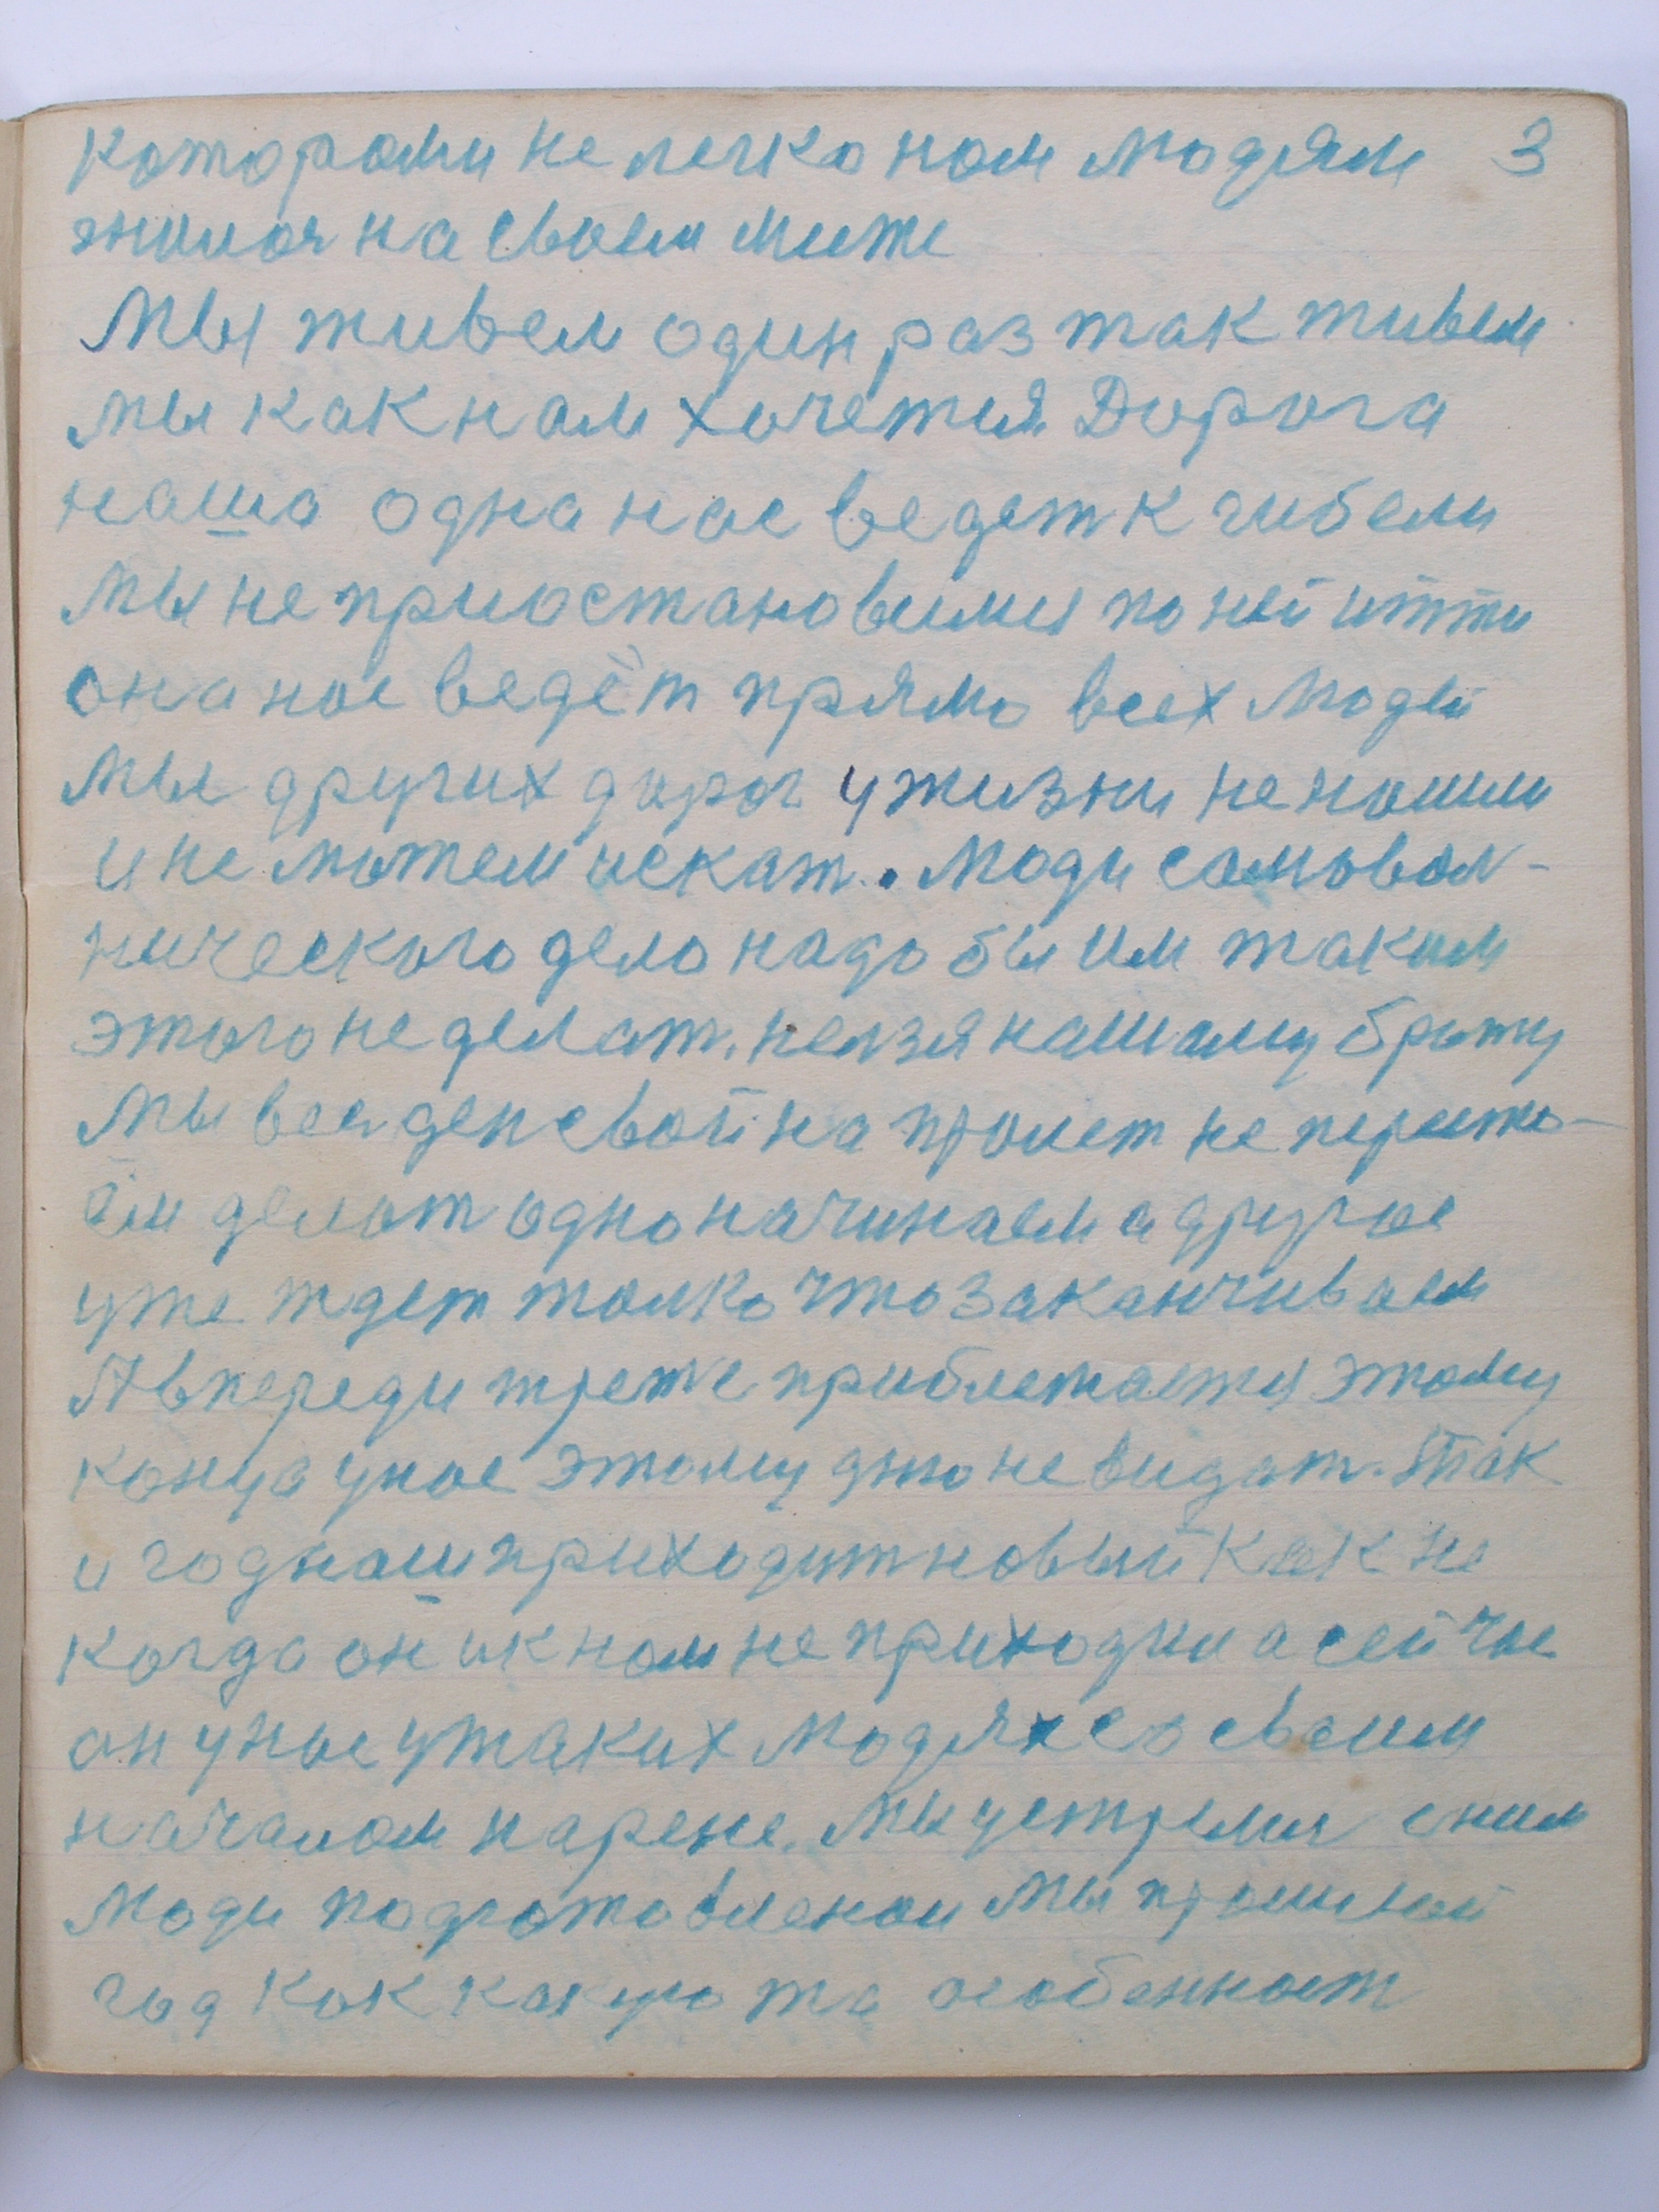 которами не легко нам людям 3
на своем
Мы живем один раз так живем
мы как нам хочется Дорога
наша одна нас ведет к гибели
Мы не приостановимся по ней итти
она нас ведёт прямо всех людей
мы других дорог у жизни не нашли
и не можем искат. Люди самовол-
нического дела надо бы им таким
этого не делат. нелзя нашаму брату
Мы вес ден свой на пролет не перест-
ём делат одно начинаем а другое
уже ждет толко что заканчиваем
А впереди трете приближается этому
конца у нас этому дно не видат. Так
и год наш приходит новый как не
когда он и к нам не приходил а сейчас
он у нас у таких людях со своим
началом на реке. Мы устрелис с ним
Люди подготовленаи Мы прошлый
год как какую та особенност